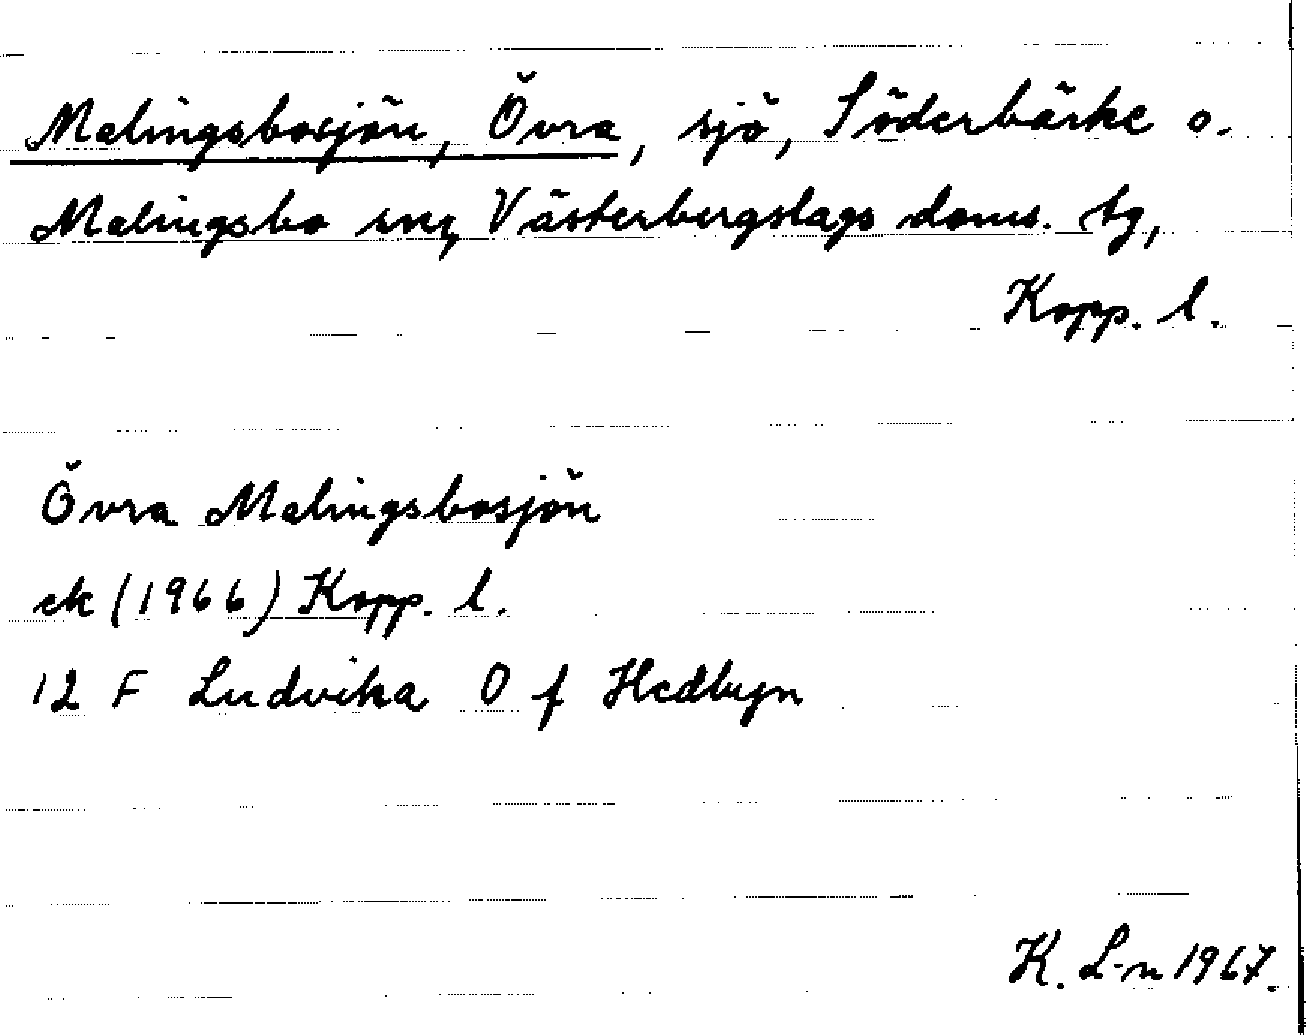 Malingsbosjön, Övra, sjö, Söderbärke o.
Malingsbo snr, Västerbergslags doms. tg,
Kopp. l.
Övra Malingsbosjön
ek (1966) Kopp. l.
12 F Ludvika 0 f Hedbyn
K. L-n 1967.